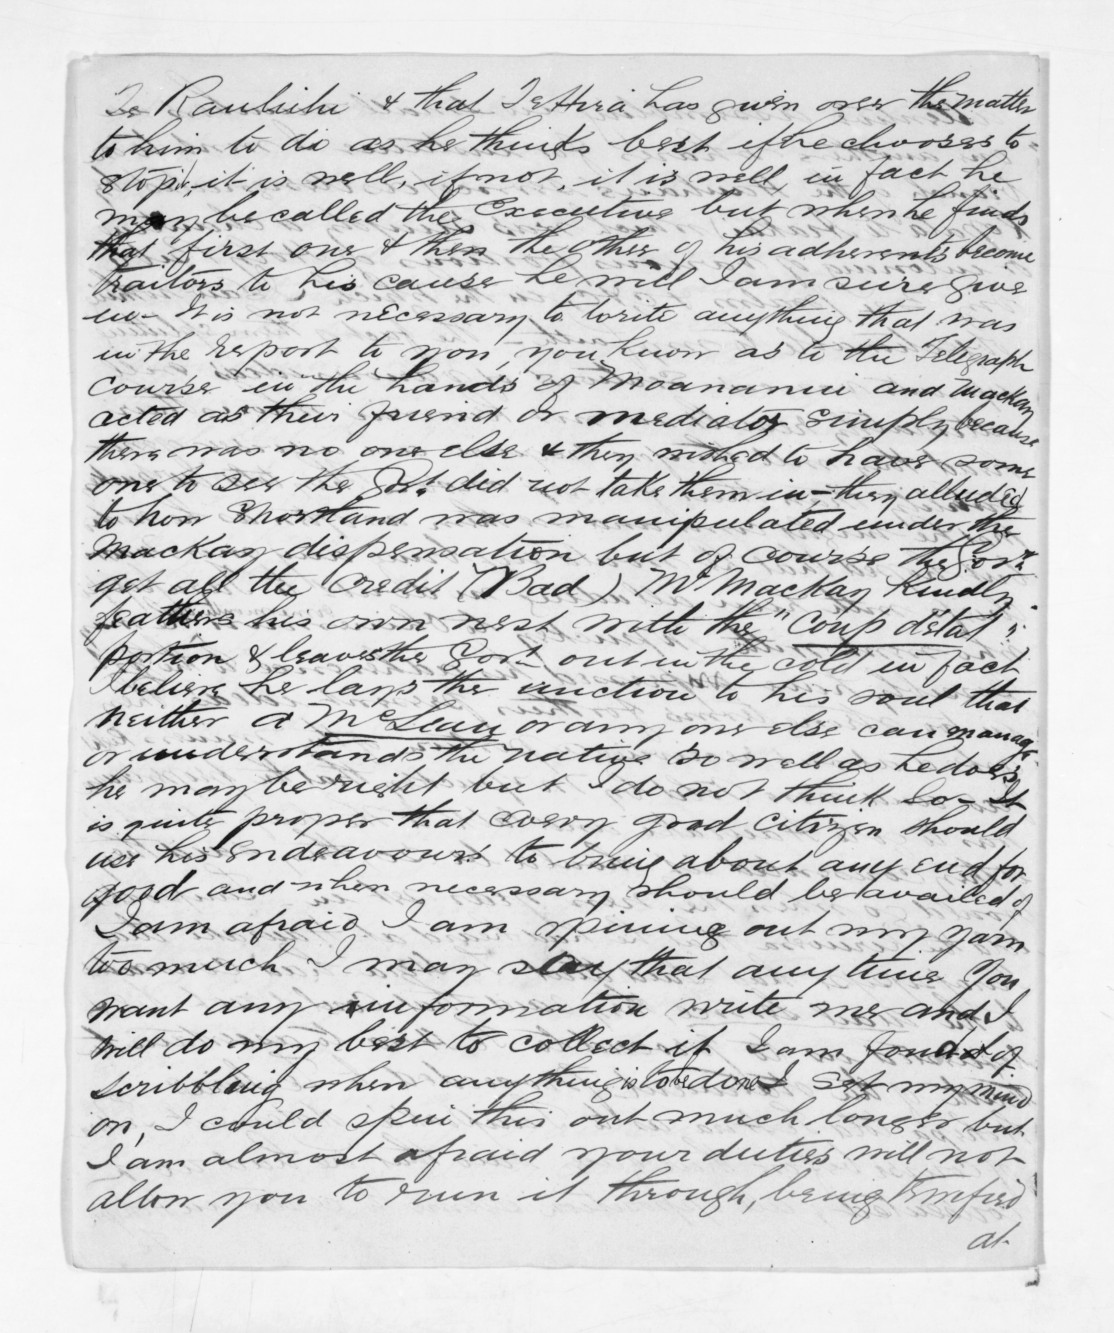 Te Raukihi & that Te Hira has given over the matter
to him to do as he thinks best if he chooses to
stop, it is well, if not, it is well, in fact he
may be called the Executive but when he finds
that first one & then the other of his adherents become
traitors to his cause he will I am sure give
in - It is not necessary to write anything that was
in the report to you, you know as to the Telegraph
course in the hands of Moananui and Mackay
acted as their friend or mediator simply because
there was no one else & they wished to have some
one to see the Govt. did not take them in - they alluded
to how Shortland was manipulated under the
Mackay dispensation but of course the Govt.
get all the credit (Bad) Mr Mackay kindly
feathers his own nest with the "Coup détat"
portion & leaves the Govt. out in the cold in fact
I believe he lays the unction to his soul that
neither a McLean or any one else can manage
or understands the native so well as he does,
he may be right but I do not think so - It
is quite proper that every good citizen should
use his endeavours to bring about any end for
good and when necessary should be availed of
I am afraid I am spining out my yarn
too much I may say that any time You
want any information write me and I
will do my best to collect it I am fond of
scribbling when anything is to be done I set my mind
on, I could spin this out much longer but
I am almost afraid your duties will not
allow you to run it through, being
at